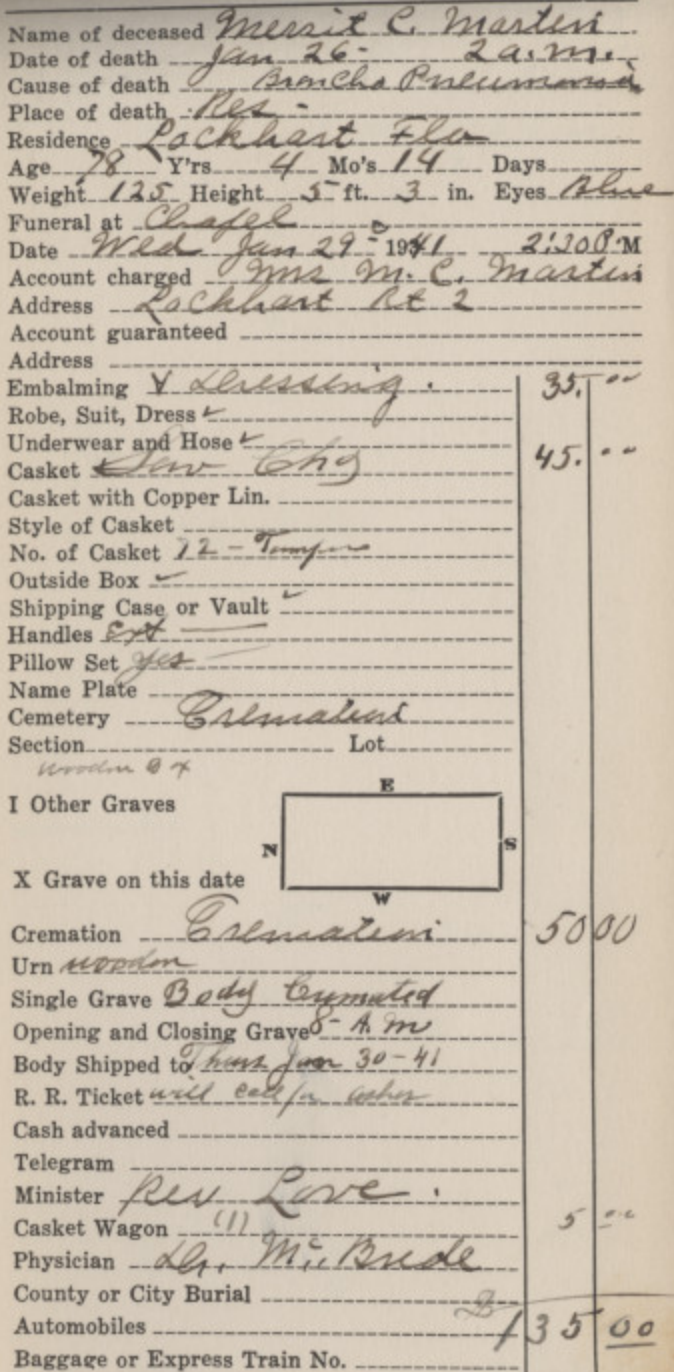 Name of deceased Merrit C. Martin
Date of death Jan 26- 2 a.m.
Cause of death Broncho Pneumonia
Place of death Res-
Residence Lockhart Fla
Age 78 Y'rs 4 Mo's 14 Days
Weight 125 Height 5 ft. 3 in. Eyes Blue
Funeral at Chapel
Date Wed Jan 29- 1941 2:30 P.M
Account charged Mrs M. C. Martin
Address Lockhart Rt 2
Account guaranteed
Address
Embalming & Dressing. 35.00
Robe, Suit, Dress ✓
Underwear and Hose ✓
Casket Chg 45.00
Casket with Copper Lin.
Style of Casket
No. of Casket 12 -
Outside Box ✓
Shipping Case or Vault ✓
Handles Ext
Pillow Set yes
Name Plate
Cemetery Cremation
Section Lot
wooden
E
I Other Graves
N S
X Grave on this date
W
Cremation Cremation 50 00
Urn wooden
Single Grave Body Cremated
Opening and Closing Grave 8- A m
Body Shipped to Thurs Jan 30-41
R. R. Ticket will call for ashes
Cash advanced
Telegram
Minister Rev Love.
Casket Wagon (1) 5 00
Physician Dr. McBride
County or City Burial
Automobiles 135 00
Baggage or Express Train No.